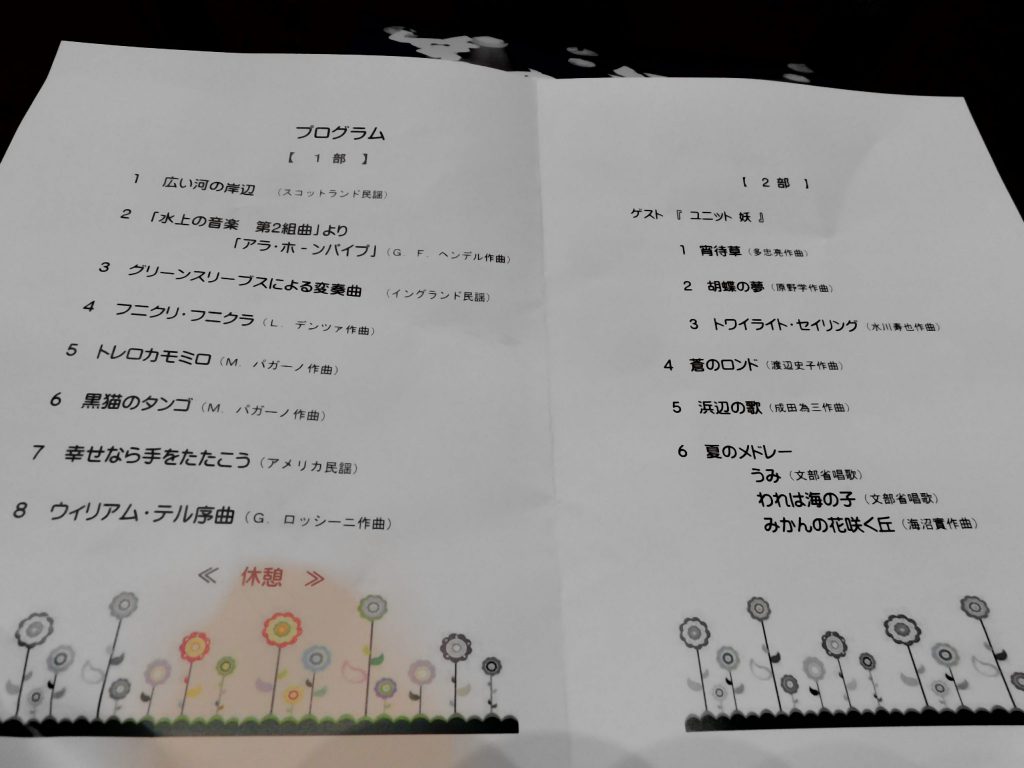 プログラム
【 1部 】
1 広い河の岸辺 (スコットランド民謡)
2 「水上の音楽 第2組曲」より
「アラ・ホ-ンパイプ」(G. F. ヘンデル作曲)
3 グリーンスリーブスによる変奏曲 (イングランド民謡)
4 フニクリ・フニクラ (L. デンツァ作曲)
5 トレロカモミロ (M. パガーノ作曲)
6 黒猫のタンゴ (M. パガーノ作曲)
7 幸せなら手をたたこう (アメリカ民謡)
8 ウィリアム・テル序曲 (G. ロッシーニ作曲)
≪ 休憩 ≫
【 2部 】
ゲスト 『 ユニット 妖 』
1 宵待草 (多忠亮作曲)
2 胡蝶の夢 (原野学作曲)
3 トワイライト・セイリング (水川寿也作曲)
4 蒼のロンド (渡辺史子作曲)
5 浜辺の歌 (成田為三作曲)
6 夏のメドレー
うみ (文部省唱歌)
われは海の子 (文部省唱歌)
みかんの花咲く丘 (海沼實作曲)